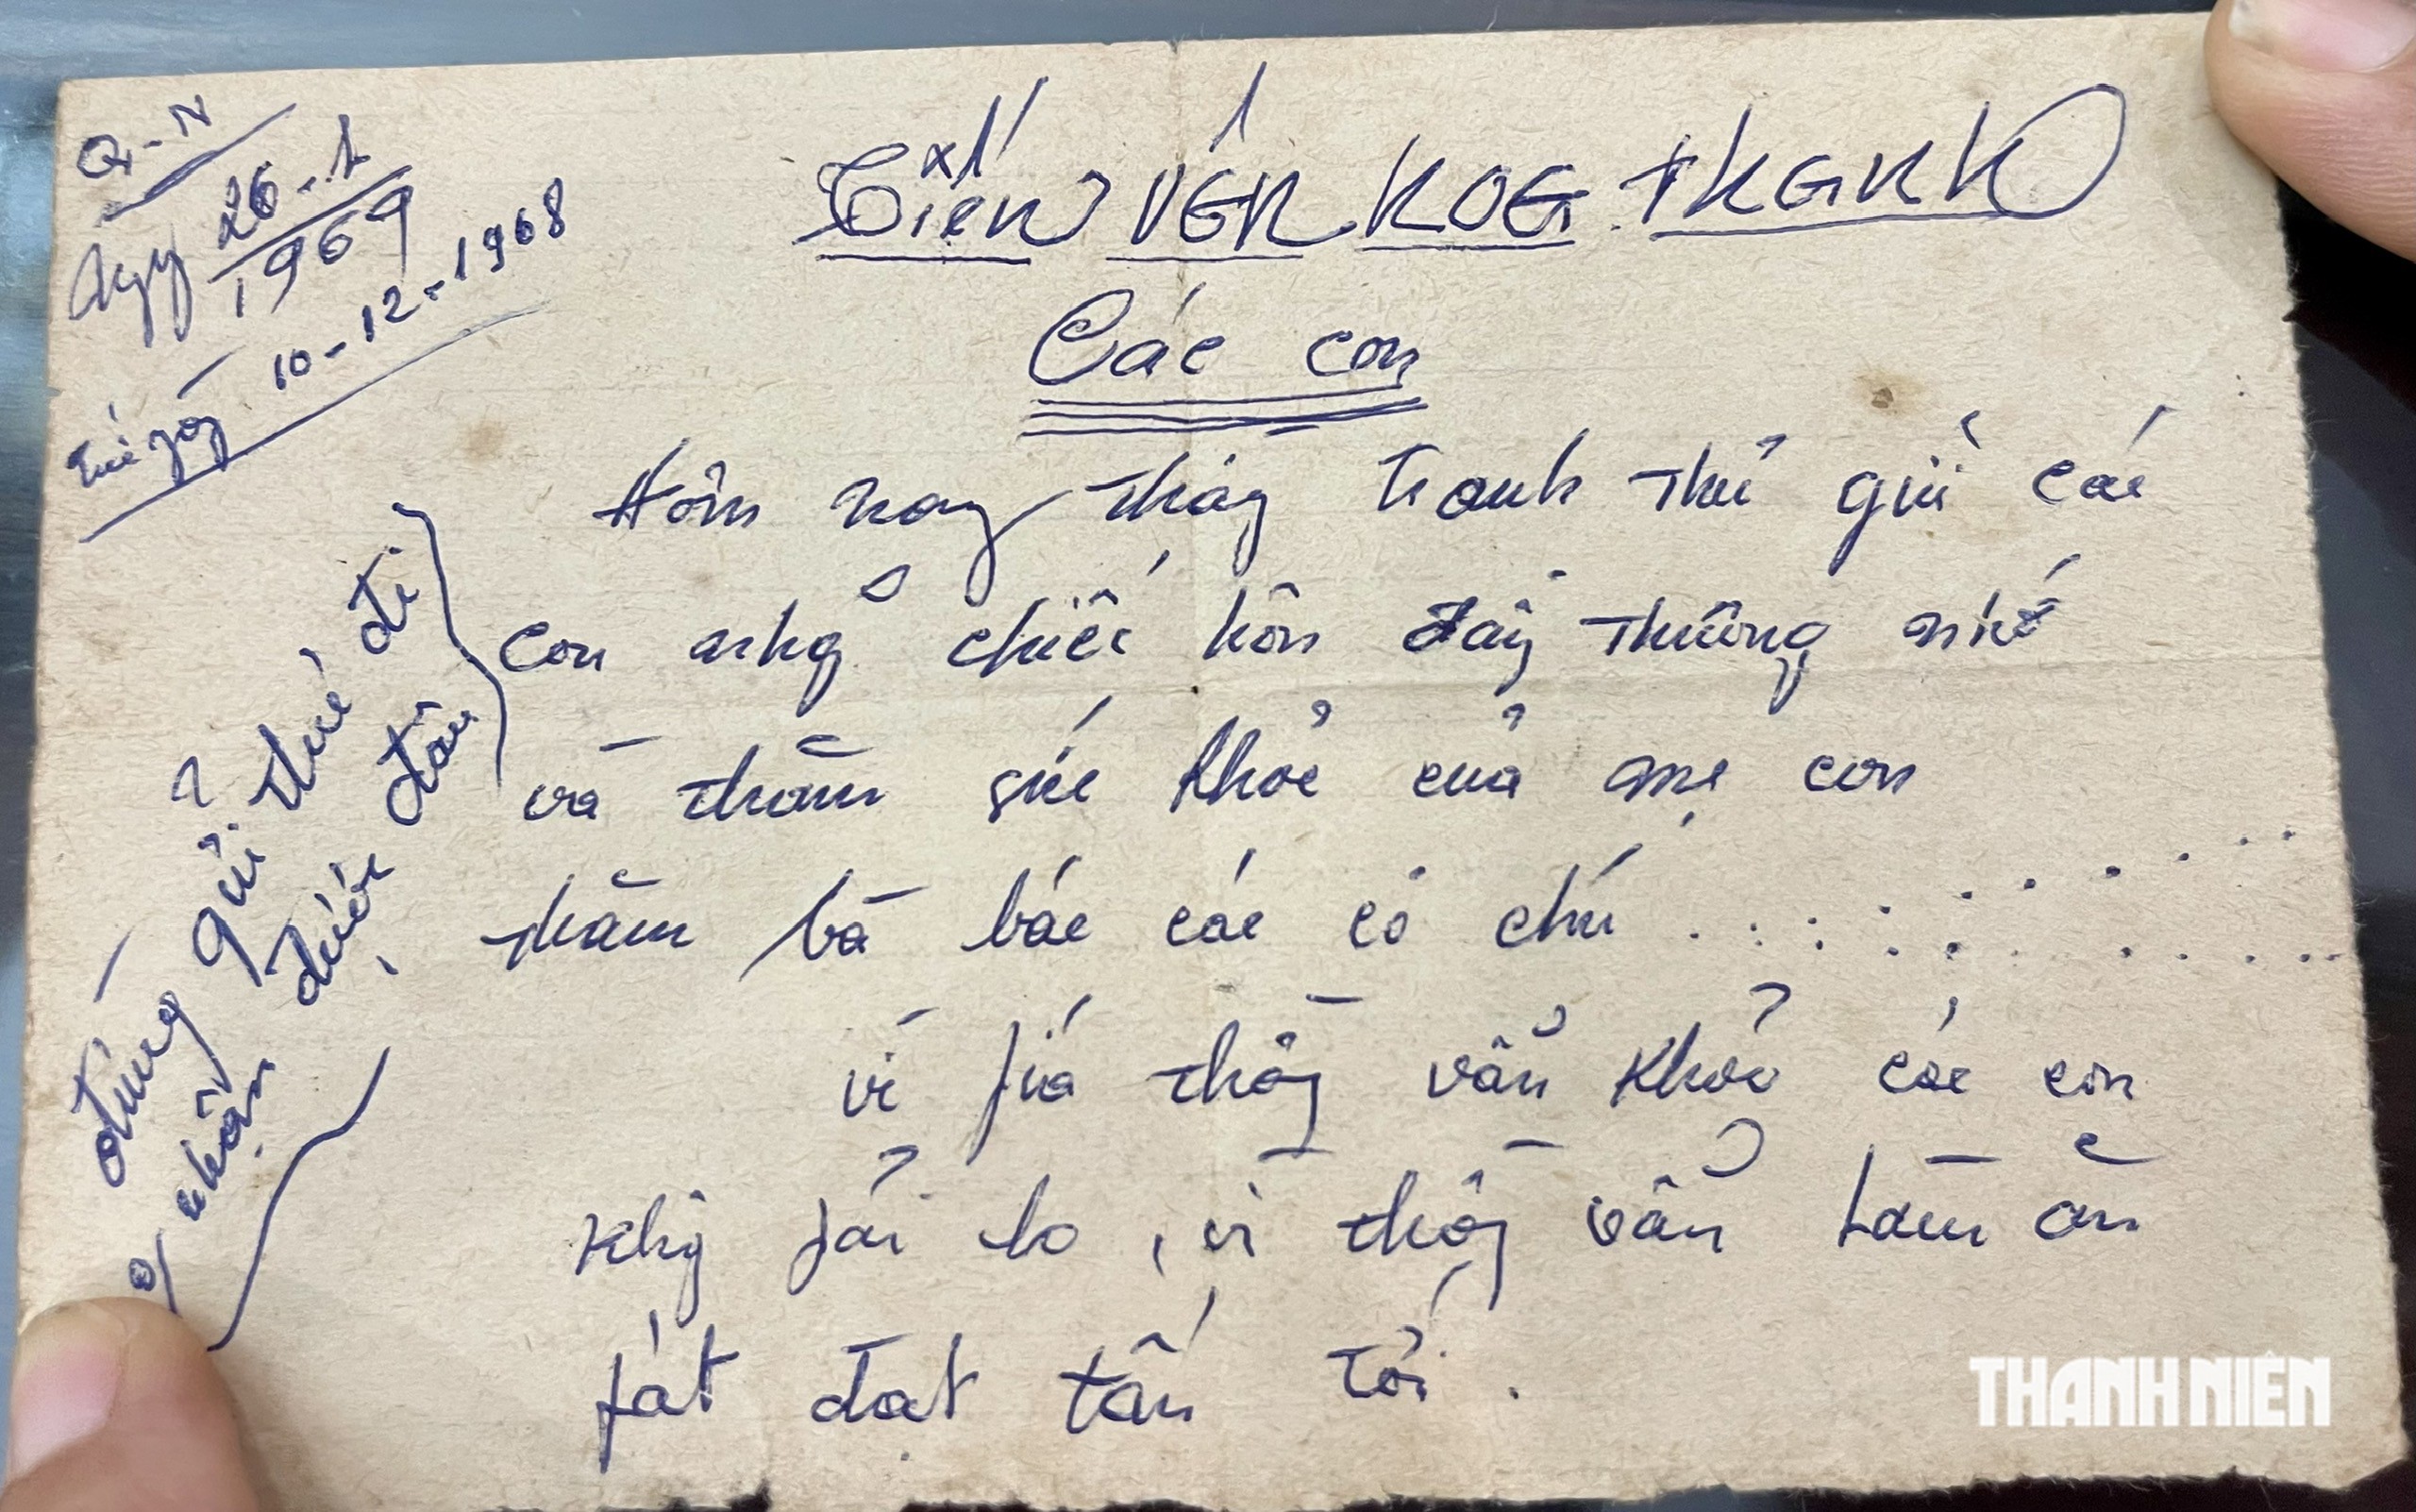 Q-N
Ngày 26-1
1969
tức ngày 10-12-1968
Tiến VÂN HOA THANH
Các con
Hôm nay thầy tranh thủ gửi các
con nhg chiếc hôn đầy thương nhớ
và thăm sức khỏe của mẹ con
thăm bà bác các cô chú . . . . . . . . . .
về fía thầy vẫn khỏe các con
khg fải lo, vì thầy vẫn làm ăn
fát đạt tấn tới.
đừng gửi thư đi
o/ nhận được đâu
THANH NIÊN